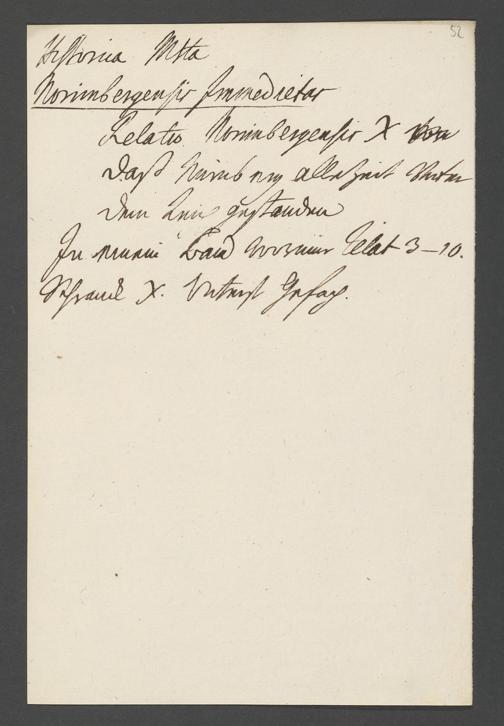 52
Historica Mtta
Norimbergensis Immedietas
Relatio Norimbergensis X
daß Nürnberg allezeit Unter
dem gestanden
In Band worinn Relat 3–10.
Schranck X. Unterst Gefach.